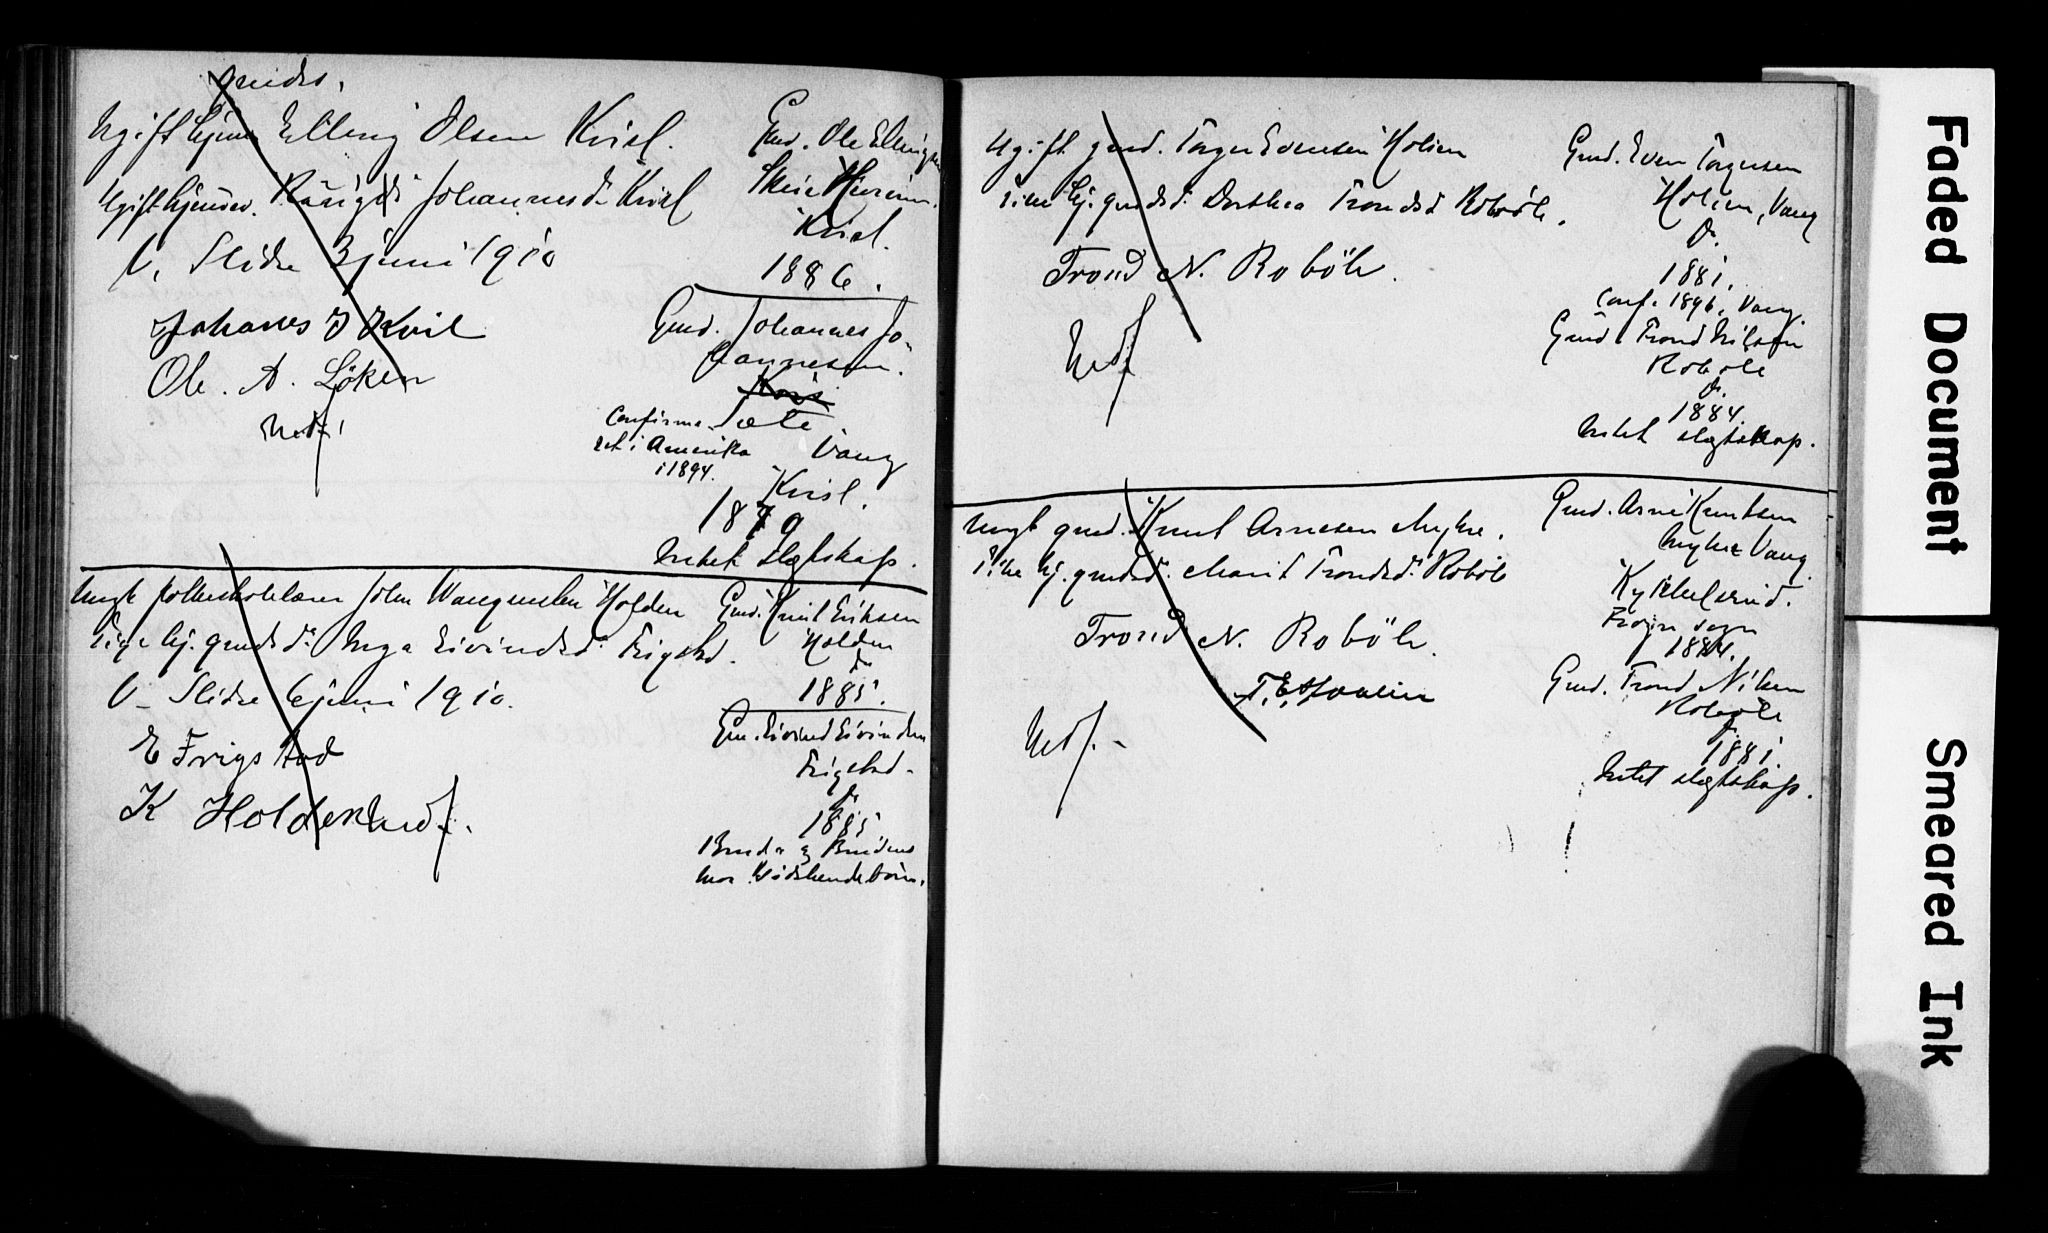 gmds.
Ugift hjem Elling Olsen Kvisl.
Ugift hjemev. Rangdi Johannesdr Kvisl
V. Slidre 3 juni 1910
Johanes J Kvil
Ole. A. Løken
Undf.
Gmd. Ole Ellingsen
Kvisl.
1886.
Gmd. Johannes Jo-
hannesen.
Sæte
Vang
Confirme-
ret i Amerika
i 1894.
Kvisl.
1879
Intet slægtskap.
Ungk folkeskolelærer John Wangensten Holden
Pige hj. gmdsdr. Inga Eivindsdr. Frigstad.
V. Slidre 6 juni 1910.
E Frigstad
K Holden
Undf.
Gmd. Knut Eriksen
Holden
do
1885.
Gm. Eivind Eivindsen
Frigstad.
do
1885
Brud og Brudens
mor Sødskendebørn.
Ugift gmd. Torger Evensen Holien
Pike hj. gmdsd. Dorthea Trondsd. Robøle.
Trond N. Roböle.
Undf.
Gmd. Even Torgersen
Holien, Vang
do.
1881.
Conf. 1896, Vang.
Gmd Trond Nilsen
Robøle
do.
1884.
Intet slægtskap.
Ungk gmd. Knut Arnesen Myhre.
Pike hj. gmdsd. Marit Trondsdr. Robøle
Trond N. Roböle.
T. E. Hovelien
Undf.
Gmd. Arne Knutsen
Myhre Vang.
Kykkelsrud.
Frogn sogn
1884.
Gmd. Trond Nilsen
Robøle
do.
1881.
Intet slægtskap.
Faded Document
Smeared Ink